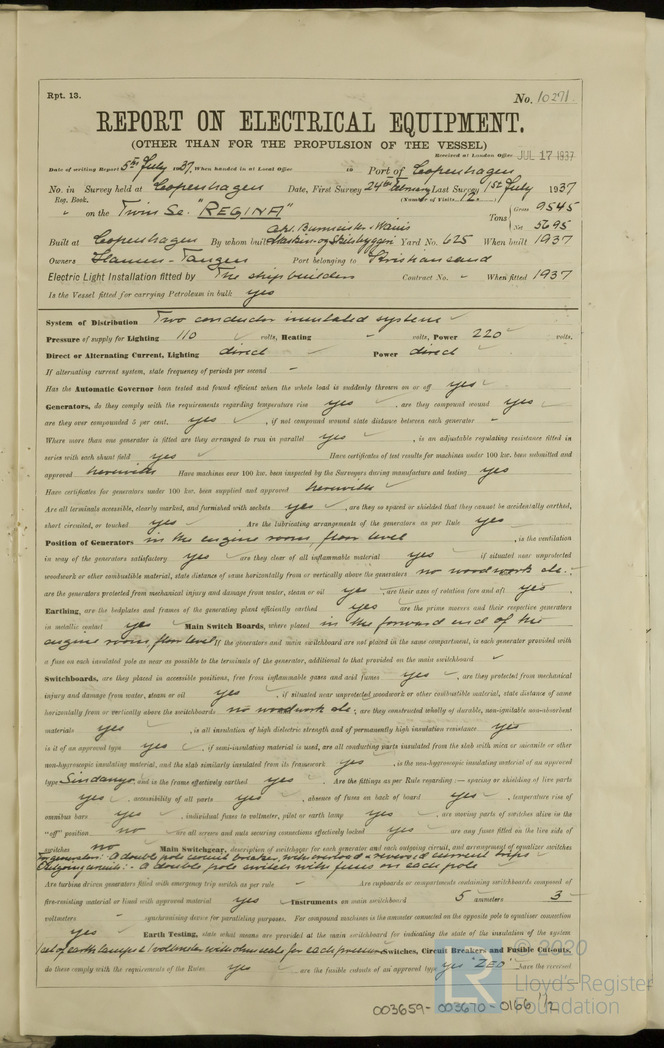 Rpt. 13.
No. 10271.
REPORT ON ELECTRICAL EQUIPMENT.
(OTHER THAN FOR THE PROPULSION OF THE VESSEL)
Received at London Office JUL 17 1937
Date of writing Report 5th July 1937. When handed in at Local Office 10 Port of Copenhagen
No. in Survey held at Copenhagen Date, First Survey 24th February Last Survey 1st July 1937
Reg. Book. (Number of Visits 12)
" on the Twin Sc. "REGINA" Tons Gross 9545
Net 5695
Built at Copenhagen By whom built A/S. Burmeister & Wain's Maskin- og Skibsbyggeri Yard No. 625 When built 1937
Owners Port belonging to Kristiansand
Electric Light Installation fitted by The shipbuilders Contract No. - When fitted 1937
Is the Vessel fitted for carrying Petroleum in bulk yes
System of Distribution Two conductor insulated system
Pressure of supply for Lighting 110 volts, Heating - volts, Power 220 volts.
Direct or Alternating Current, Lighting direct Power direct
If alternating current system, state frequency of periods per second -
Has the Automatic Governor been tested and found efficient when the whole load is suddenly thrown on or off yes
Generators, do they comply with the requirements regarding temperature rise yes, are they compound wound yes
are they over compounded 5 per cent. yes, if not compound wound state distance between each generator -
Where more than one generator is fitted are they arranged to run in parallel yes, is an adjustable regulating resistance fitted in
series with each shunt field yes Have certificates of test results for machines under 100 kw. been submitted and
approved herewith Have machines over 100 kw. been inspected by the Surveyors during manufacture and testing yes
Have certificates for generators under 100 kw. been supplied and approved herewith
Are all terminals accessible, clearly marked, and furnished with sockets yes, are they so spaced or shielded that they cannot be accidentally earthed,
short circuited, or touched yes Are the lubricating arrangements of the generators as per Rule yes
Position of Generators in the engine room, floor level, is the ventilation
in way of the generators satisfactory yes are they clear of all inflammable material yes if situated near unprotected
woodwork or other combustible material, state distance of same horizontally from or vertically above the generators no woodwork etc.
are the generators protected from mechanical injury and damage from water, steam or oil yes, are their axes of rotation fore and aft yes
Earthing, are the bedplates and frames of the generating plant efficiently earthed yes are the prime movers and their respective generators
in metallic contact yes Main Switch Boards, where placed in the forward end of the
engine room, floor level If the generators and main switchboard are not placed in the same compartment, is each generator provided with
a fuse on each insulated pole as near as possible to the terminals of the generator, additional to that provided on the main switchboard -
Switchboards, are they placed in accessible positions, free from inflammable gases and acid fumes yes, are they protected from mechanical
injury and damage from water, steam or oil yes, if situated near unprotected woodwork or other combustible material, state distance of same
horizontally from or vertically above the switchboards no woodwork etc., are they constructed wholly of durable, non-ignitable non-absorbent
materials yes, is all insulation of high dielectric strength and of permanently high insulation resistance yes
is it of an approved type yes, if semi-insulating material is used, are all conducting parts insulated from the slab with mica or micanite or other
non-hygroscopic insulating material, and the slab similarly insulated from its framework yes, is the non-hygroscopic insulating material of an approved
type Sindanyo and is the frame effectively earthed yes. Are the fittings as per Rule regarding:— spacing or shielding of live parts
yes, accessibility of all parts yes, absence of fuses on back of board yes, temperature rise of
omnibus bars yes, individual fuses to voltmeter, pilot or earth lamp yes, are moving parts of switches alive in the
"off" position no are all screws and nuts securing connections effectively locked yes are any fuses fitted on the live side of
switches no Main Switchgear, description of switchgear for each generator and each outgoing circuit, and arrangement of equalizer switches
For generators: A double pole circuit breaker, with overload & reversed current trips
Outgoing circuits:- A double pole switch with fuses on each pole
Are turbine driven generators fitted with emergency trip switch as per rule - Are cupboards or compartments containing switchboards composed of
fire-resisting material or lined with approved material yes Instruments on main switchboard 5 ammeters 3
voltmeters - synchronising device for paralleling purposes. For compound machines is the ammeter connected on the opposite pole to equaliser connection
yes Earth Testing, state what means are provided at the main switchboard for indicating the state of the insulation of the system
1 set of earth lamps & 1 voltmeter with ohm scale for each pressure Switches, Circuit Breakers and Fusible Cutouts,
do these comply with the requirements of the Rules yes are the fusible cutouts of an approved type yes "ZED" have the reversed
© 2020
LR
Lloyd's Register
Foundation
003659-003670-0166 1/2